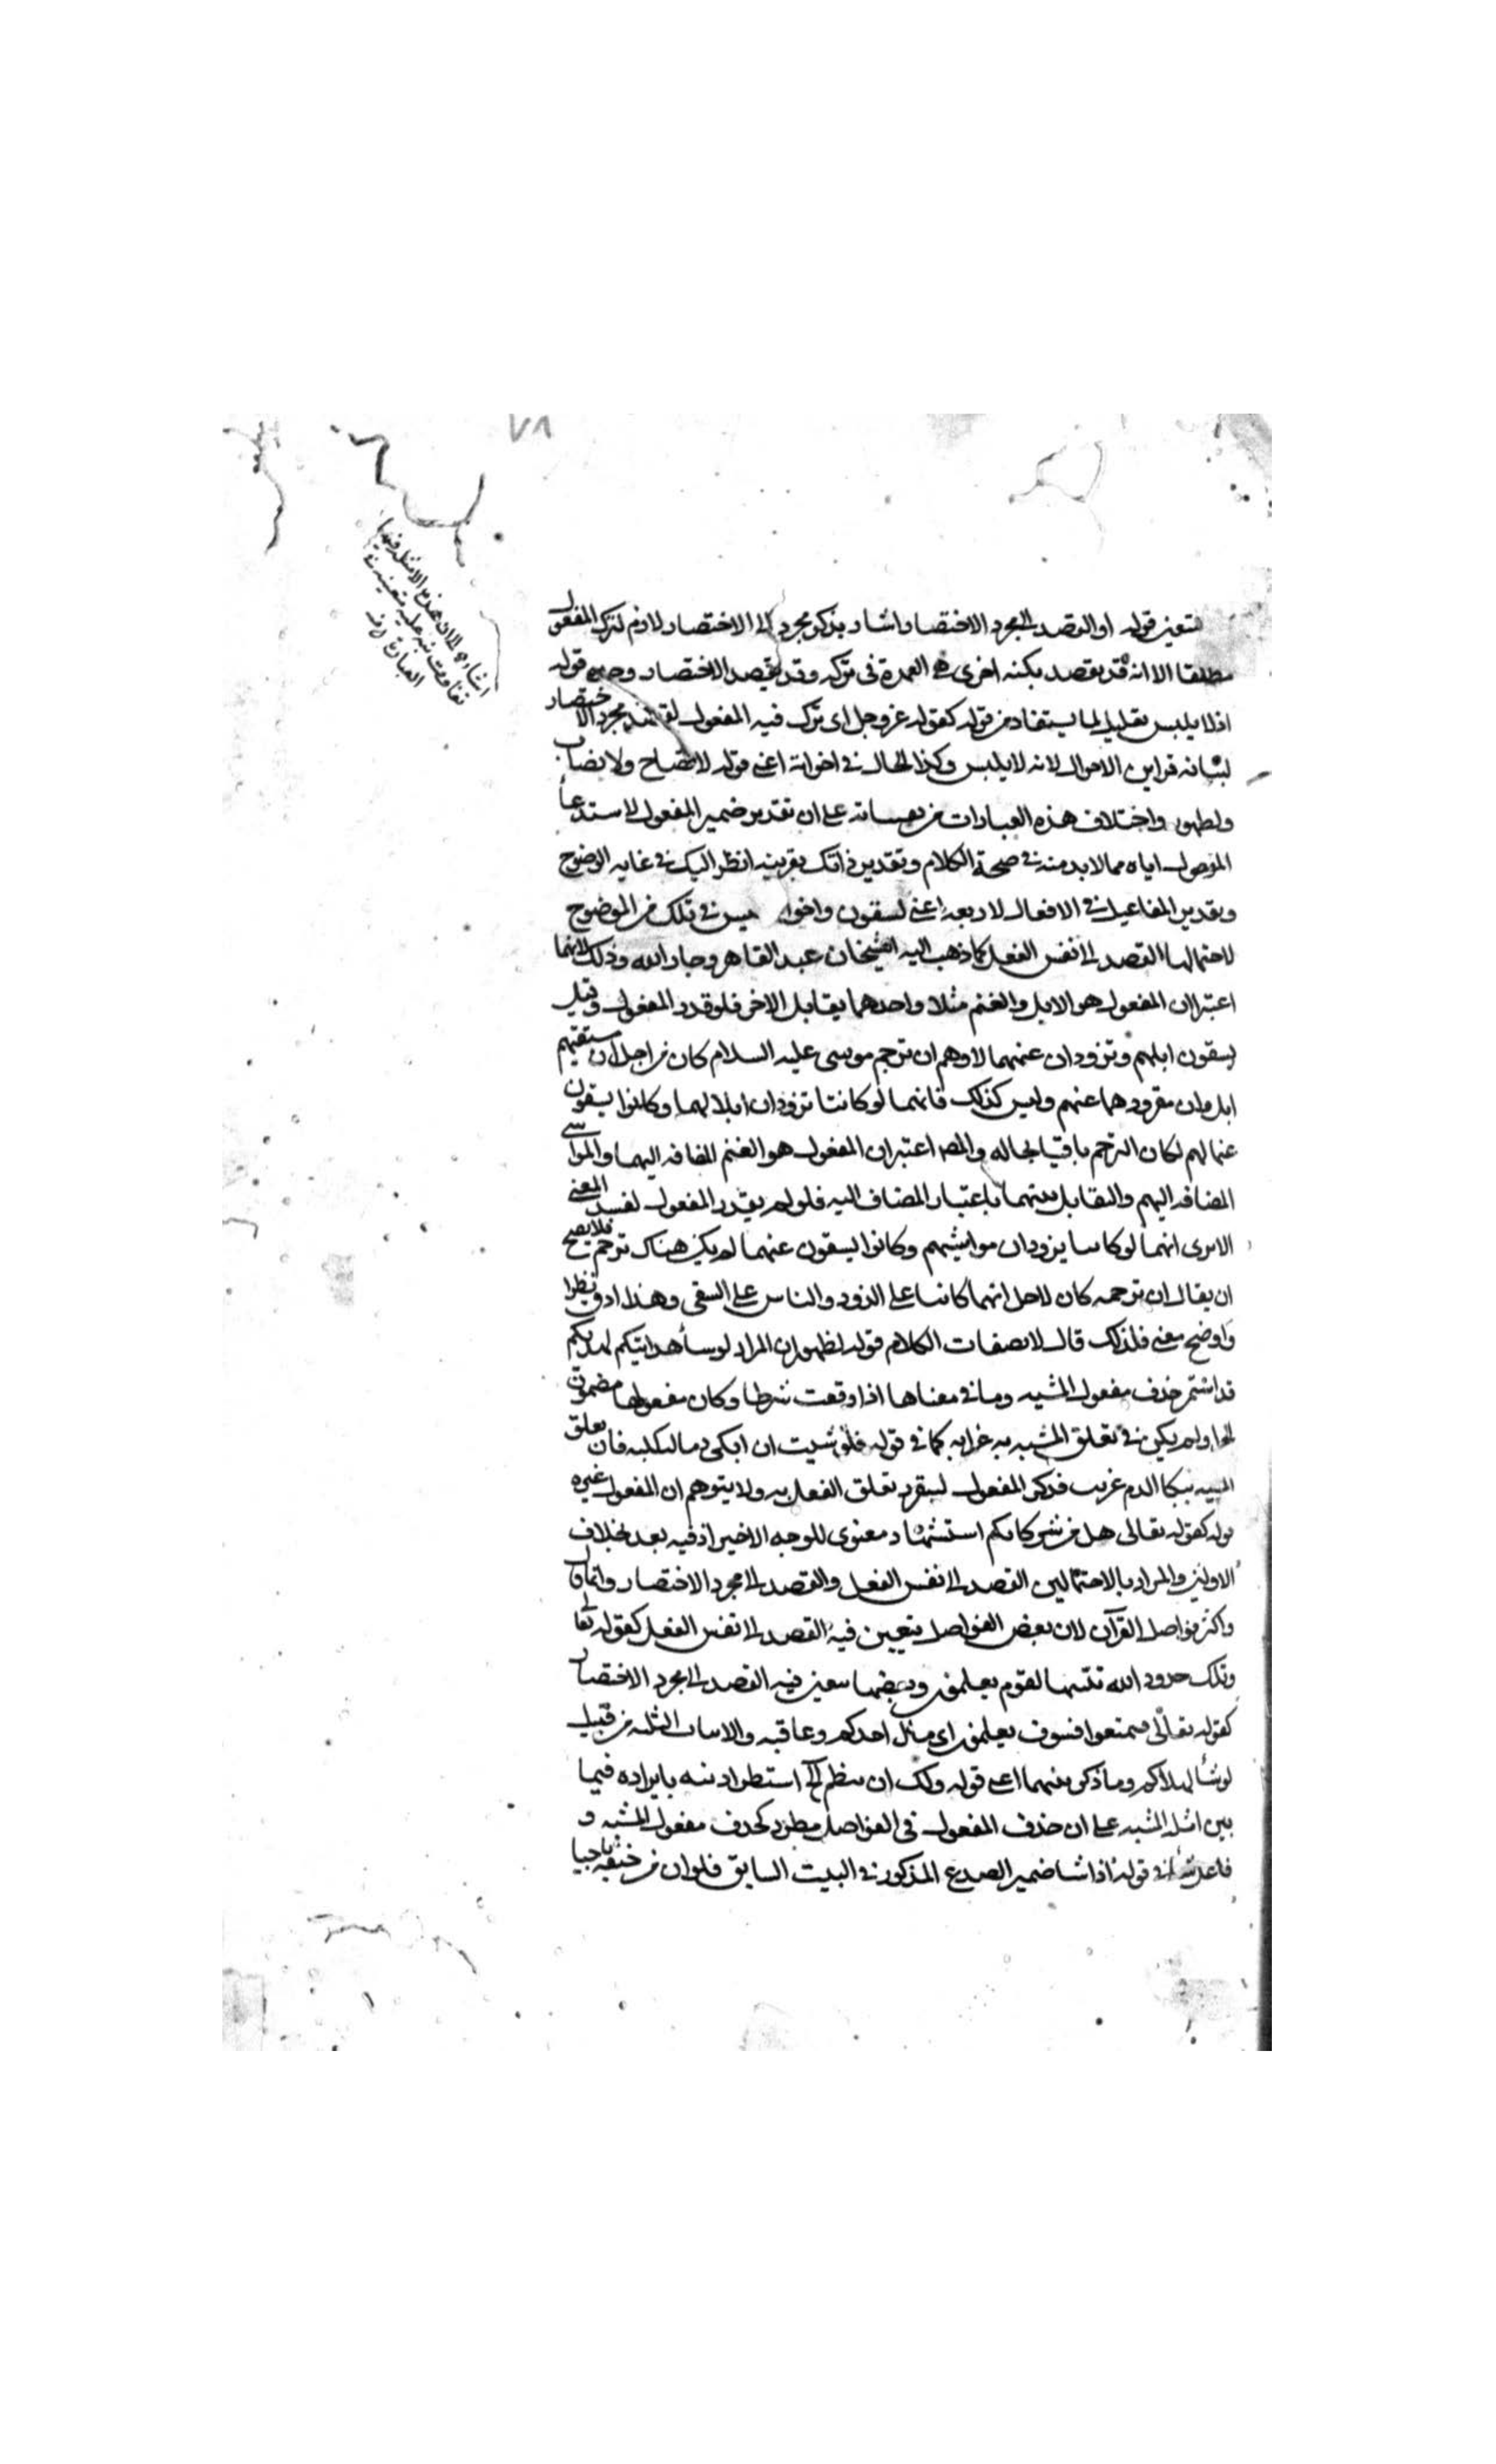 ٧٨
قوله او القصد الى مجرد الاختصار اشار بذكر مجرد الى ان الاختصار لازم لترك المفعول
مطلقا الا انه قد يقصد نكتة اخرى هي العمدة في تركه وقد يقصد الاختصار وحده قوله
اذ لا يلبس تعليل لما يستفاد من قوله كقوله عز وجل اى ترك فيه المفعول لقصد مجرد الاختصار
قراين الاحوال لانه لا يلبس وكذا الحال في اخواته اعني قوله لانصباب
واختلاف هذه العبارات على ان تقدير ضمير المفعول لاستدعا
الموصول اياه مما لا بد منه في صحة الكلام وتقدير ذاتك بقرينه انظر اليك في غايه الوضوح
وتقدير المفاعيل في الافعال الاربعه اعني يسقون واخواته ليس في تلك من الموضوح
لاحتمالها القصد الى نفس الفعل كما ذهب اليه الشيخان عبد القاهر وجار الله وذلك لانهما
اعتبرا ان المفعول هو الابل والغنم مثلا واحدهما يقابل الاخر فلو قدر المفعول وقيل
يسقون ابلهم وتزودان غنمهما لاوهم ان ترحم موسى عليه السلام كان من اجل ان سقيهم
ابل وان مزودهما غنم وليس كذلك فانهما لو كانتا تزودان ابلا لهما وكانوا يسقون
غنما لهم لكان الترحم باقيا بحاله والمص اعتبر ان المفعول هو الغنم المضافه اليهما والمواشي
المضافه اليهم والتقابل بينهما باعتبار المضاف اليه فلو لم يقدر المفعول لفسد المعنى
الا يرى انهما لو كانتا يزودان مواشيهم وكانوا يسقون غنمهما لم يكن هناك ترحم فلا يصح
ان يقال ان ترحمه كان لاجل انهما كانتا على الذود والناس على السقى وهذا ادق نظرا
واوضح معنى فلذلك قال لانصباب الكلام قوله لظهور ان المراد لو شاء هدايتكم لهديكم
قد اشتهر حذف مفعول المشيه وما في معناها اذا وقعت شرطا وكان مفعولها مضمون
الجزا ولم يكن في تعلق المشيه به غرابه كما في قوله فلو شيت ان ابكى دما لبكيته فان تعلق
المشيه ببكا الدم غريب فذكر المفعول ليتقرر تعلق الفعل به ولا يتوهم ان المفعول غيره
قوله كقوله تعالى هل من شركائكم استشهاد معنوى للوجه الاخير اذ فيه بعد بخلاف
الاولين والمراد بالاحتمالين القصد الى نفس الفعل والقصد الى مجرد الاختصار وانما قال
واكثر فواصل القرآن لان بعض الفواصل يتعين فيه القصد الى نفس الفعل كقوله تعالى
وتلك حدود الله نبينها لقوم يعلمون وبعضها يتعين فيه القصد الى مجرد الاختصار
كقوله تعالى فتمتعوا فسوف يعلمون اى عاقبه والايات الثلثه من قبيل
لو شا لهداكم وما ذكر بينهما اعنى قوله ولك ان تنظم الخ استطراد نبه بايراده فيما
بين امثله المشيه على ان حذف المفعول في الفواصل مطرد كحذف مفعول المشيه و
فاعل شا في قوله اذا شا ضمير الصدع المذكور في البيت السابق فلو ان من حتفه ناجيا
اشاره الى ان هذه الامثله فيها
تفاوت نبه عليه بتعيينه في
العبارة